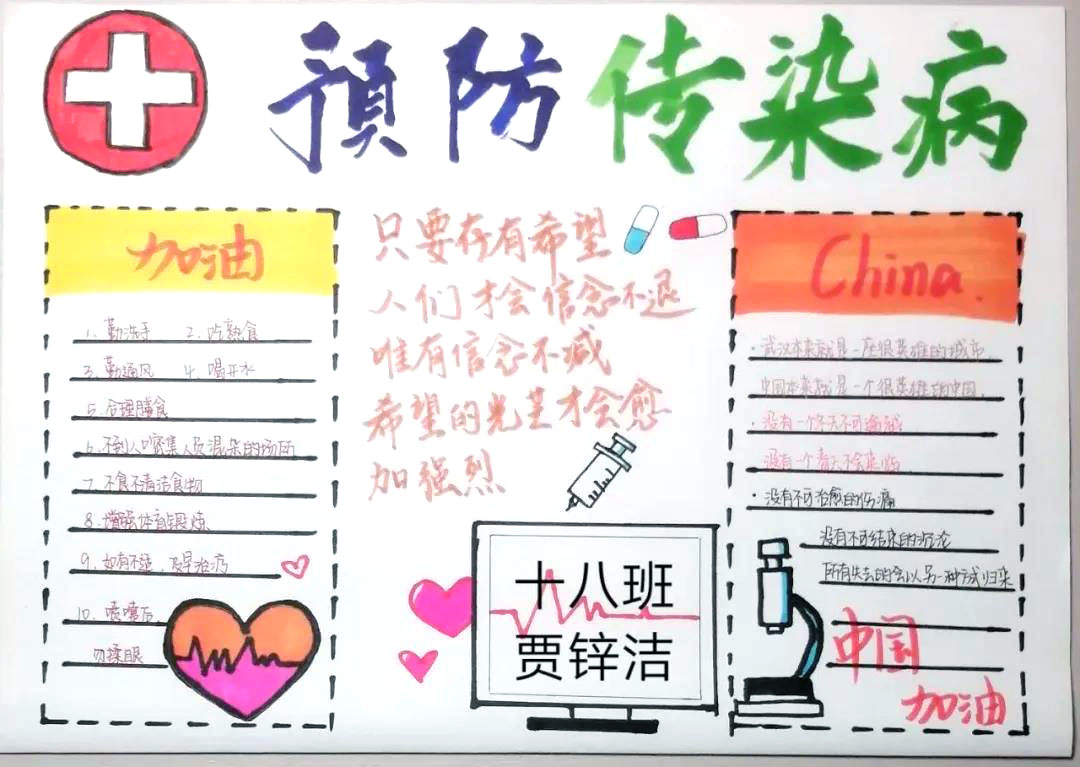 预防传染病
加油
1. 勤洗手 2. 吃熟食
3. 勤通风 4. 喝开水
5. 合理膳食
6. 不到人口密集人员混杂的场所
7. 不食不清洁食物
8. 增强体育锻炼
9. 如有不适，及早治疗
10. 喷嚏后
勿揉眼
只要存有希望
人们才会信念不退
唯有信念不减
希望的光芒才会愈
加强烈
十八班
贾锌洁
China.
·武汉本来就是一座很英雄的城市
中国本来就是一个很英雄的中国.
·没有一个冬天不可逾越
没有一个春天不会来临
·没有不可治愈的伤痛
没有不可结束的沉沦
所有失去的会以另一种方式归来
中国
加油